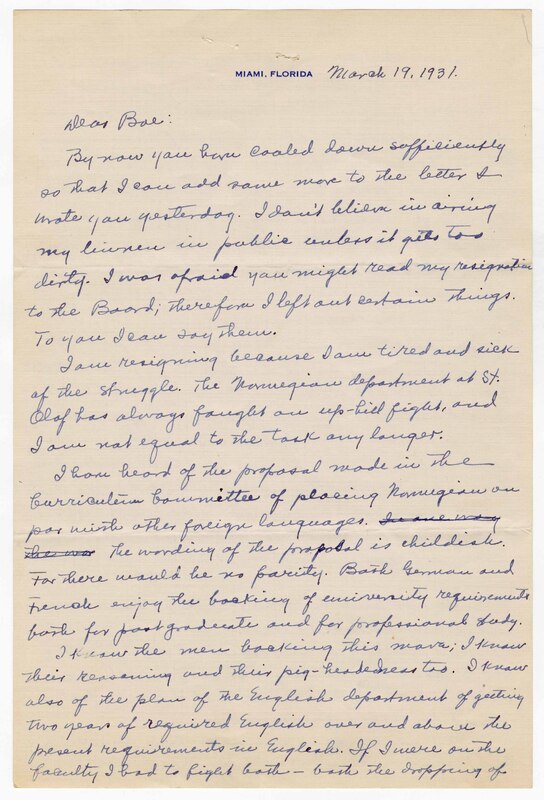 MIAMI, FLORIDA March 19, 1931.
Dear Boe:
By now you have cooled down sufficiently
so that I can add some more to the letter I
wrote you yesterday. I don't believe in airing
my linnen in public unless it gets too
dirty. I was afraid you might read my resignation
to the Board; therefore I left out certain things.
To you I can say them.
I am resigning because I am tired and sick
of the struggle. The Norwegian department at St.
Olaf has always faught an up-hill fight, and
I am not equal to the task any longer.
I have heard of the proposal made in the
Curriculum Committee of placing Norwegian on
par with other foreign languages. In one way
the wor the wording of the proposal is childish.
For there would be no parity. Both German and
French enjoy the backing of university requirements
both for post graduate and for professional study.
I know the men backing this move; I know
their reasoning and their pig-headedness too. I know
also of the plan of the English department of getting
two years of required English over and above the
present requirements in English. If I were on the
faculty I had to fight both – both the dropping of